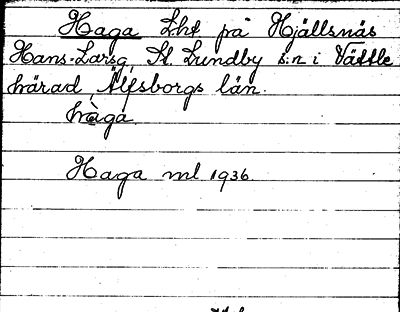 Haga Lht på Hjällsnäs
Hans-Larsg, St. Lundby s:n i Vättle
härad, Älfsborgs län.
hàga
Haga ml 1936